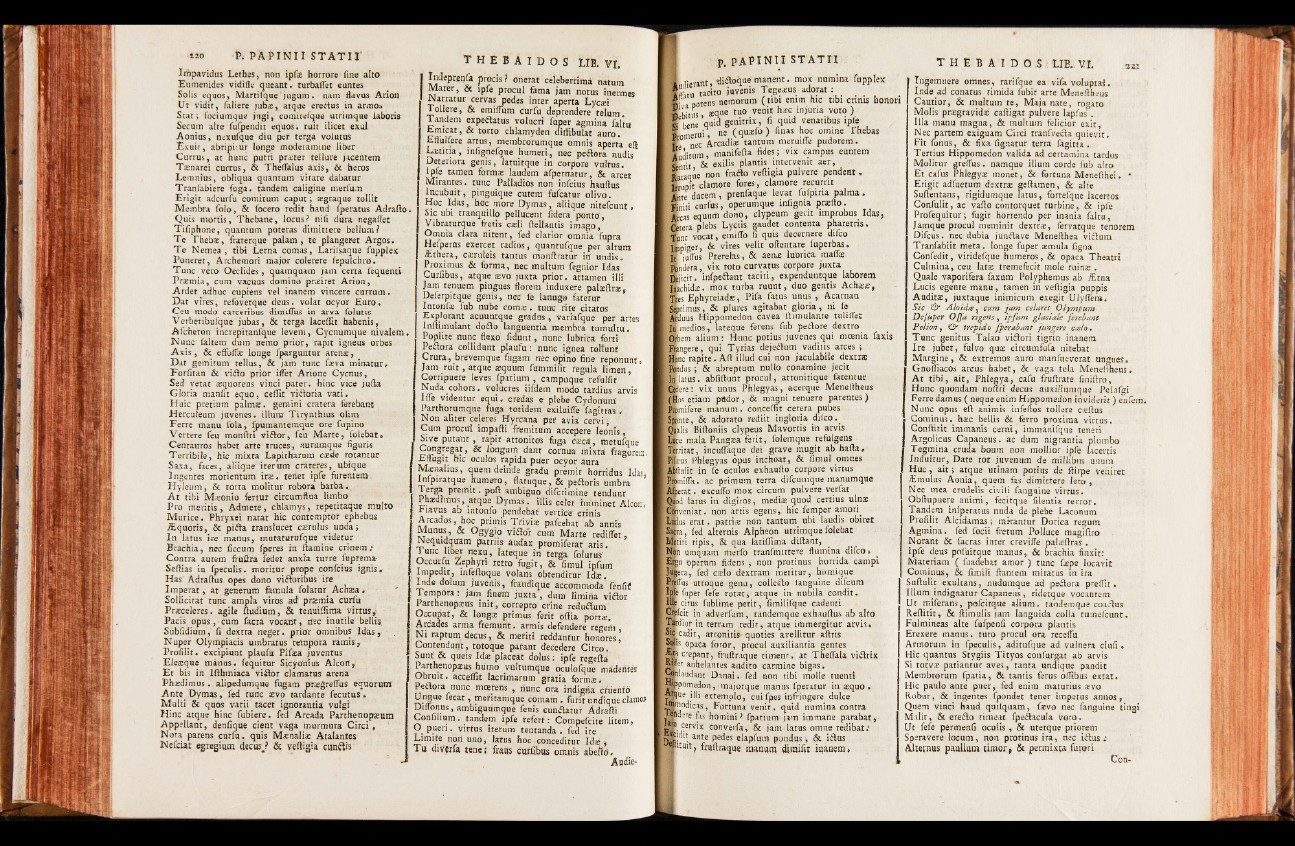 220 P. PAPINII STATII
Impavidus Lethes, non ipsæ horrore sine alto
Eumenides vidisse queant. turbasset euntes
Solis equos, Martisque jugum. nam flavus Arion
Ut vidit, saliere jubæ, atque erectus in armos
Stat; sociumque jugi, comitesque utrimque laboris
Secum alte suspendit equos. ruit ilicet exul
Aonius, nexusque diu per terga volutus
Exuit, abripitur longe moderamine liber
Currus, at hunc putri præter tellure jacentem
Tænarei currus, & Thessalus axis, & heros
Lemnius, obliqua quantum vitare dabatur
Transabiere fuga. tandem caligine mersum
Erigit adcursu comitum caput; ægraque tollit
Membra solo, & socero redit haud speratus Adrasto.
Quis mortis, Thebane, locus? nisi dura negasset
Tisiphone, quantum poteras dimittere bellum?
Te Thebæ, fraterque palam, te plangeret Argos.
Te Nemea, tibi Lerna comas, Larissaque supplex
Poneret, Archemori major colerere sepulchro.
Tunc vero Oeclides, quamquam jam certa sequenti
Præmia, cum vacuus domino præiret Arion,
Ardet adhuc cupiens vel inanem vincere currum.
Dat vires, refovetque deus. volat ocyor Euro,
Ceu modo carceribus dimissus in arva solutis
Verberibusque jubas, & terga lacessit habenis,
Ascheton increpitansque levem, Cycnumque nivalem.
Nunc saltem dum nemo prior, rapit igneus orbes
Axis, & effossæ longe sparguntur arenæ,
Dat gemitum tellus, & jam tunc sæva minatur.
Forsitan & victo prior isset Arione Cycnus,
Sed vetat æquoreus vinci pater. hinc vice justa
Gloria mansit equo, cessit victoria vati.
Huic pretium palmæ. gemini cratera ferebant
Herculeum juvenes. illum Tirynthius olim
Ferre manu sola, spumantemque ore supino
Vertere seu monstri victor, seu Marte, solebat.
Centauros habet arte truces, aurumque figuris
Terribile, hic mixta Lapitharum cæde rotantur
Saxa, faces, aliique iterum crateres, ubique
Ingentes morientum iræ. tenet ipse furentem
Hyleum, & torta molitur robora barba.
At tibi Mæonio fertur circumflua limbo
Pro meritis, Admete, chlamys, repetitaque multo
Murice. Phryxei natat hic contemptor ephebus
Æquoris, & picta translucet cærulus unda;
In latus ire manus, mutaturusque videtur
Brachia, nec siccum speres in stamine crinem:
Contra autem frustra sedet anxia turre suprema
Sestias in speculis. moritur prope conscius ignis.
Has Adrastus opes dono victoribus ire
Imperat, at generum famula solatur Achæa.
Sollicitat tunc ampla viros ad præmia cursu
Præceleres. agile studium, & tenuissima virtus,
Pacis opus, cum sacra vocant, nec inutile bellis
Subsidium, si dextra neget. prior omnibus Idas,
Nuper Olympiacis umbratus tempora ramis,
Prosilit. excipiunt plausu Pisæa juventus
Eleæque manus. sequitur Sicyonius Alcon,
Et bis in Isthmiaca victor clamatus arena
Phædimus. alipedumque fugam prægressus equorum
Ante Dymas, sed tunc ævo tardante secutus.
Multi & quos varii tacet ignorantia vulgi
Hinc atque hinc subiere. sed Arcada Parthenopæum
Appellant, densique cient vaga murmura Circi,
Nota parens cursu. quis Mænaliæ Atalantes
Nesciat egregium decus? & vestigia cunctis
THEBAIDOS LIB. VI.
Indeprensa procis? onerat celeberrima natum
Mater, & ipse procul fama jam notus inermes
Narratur cervas pedes inter aperta Lycæi
Tollere, & emissum cursu deprendere telum.
Tandem expectatus volucri super agmina saltu
Emicat, & torto chlamyden diffibulat auro.
Effulsere artus, membrorumque omnis aperta est
Lætitia, insignesque humeri, nec pectora nudis
Deteriora genis, latuitque in corpore vultus.
Ipse tamen formæ laudem aspernatur, & arcet
Mirantes. tunc Palladios non inscius haustus
Incubuit, pinguique cutem fuscatur olivo.
Hoc Idas, hoc more Dymas, aliique nitescunt.
Sic ubi tranquillo pellucent sidera ponto,
Vibraturque fretis cæli stellantis imago,
Omnia clara nitent, sed clarior omnia supra
Hesperus exercet radios, quantusque per altum
Æthera, cæruleis tantus monstratur in undis.
Proximus & forma, nec multum segnior Idas
Cursibus, atque ævo juxta prior. attamen illi
Jam tenuem pingues florem induxere palæstræ,
Deserpitque genis, nec se lanugo fatetur
Intonsæ sub nube comæ. tunc rite citatos
Explorant acuuntque gradus, variasque per artes
Instimulant docto languentia membra tumultu.
Poplite nunc flexo sidunt, nunc lubrica forti
Pectora collidunt plausu: nunc ignea tollunt
Crura, brevemque fugam nec opino fine reponunt.
Jam ruit, atque æquum summisit regula limen,
Corripuere leves spatium, campoque refulsit
Nuda cohors. volucres iisdem modo tardius arvis
Isse videntur equi. credas e plebe Cydonum
Parthorumque fuga totidem exiluisse sagittas.
Non aliter celeres Hyrcana per avia cervi;
Cum procul impasti fremitum accepere leonis,
Sive putant, rapit attonitos fuga cæca, metusque
Congregat, & longum dant cornua mixta fragorem.
Effugit hic oculos rapida puer ocyor aura
Mænalius, quem deinde gradu premit horridus Idas,
Inspiratque humero, flatuque, & pectoris umbra
Terga premit. post ambiguo discrimine tendunt
Phædimus, atque Dymas. illis celer imminet Alcon.
Flavus ab intonso pendebat vertice crinis
Arcados, hoc primis Triviæ pascebat ab annis
Munus, & Ogygio victor cum Marte redisset,
Nequidquam patriis audax promiserat aris.
Tunc liber nexu, lateque in terga solutus
Occursu Zephyri retro fugit, & simul ipsum
Impedit, infestoque volans obtenditur Idæ.
Inde dolum juvenis, fraudique accommoda sensit
Tempora: jam finem juxta, dum limina victor
Parthenopæus init, correpto crine reductum
Occupat, & longæ primus ferit ostia portæ.
Arcades arma fremunt. armis defendere regem,
Ni raptum decus, & meriti reddantur honores,
Contendunt, totoque parant decedere Circo.
Sunt & queis Idæ placeat dolus: ipse regesta
Parthenopæus humo vultumque oculosque madentes
Obruit. accessit lacrimarum gratia formæ.
Pectora nunc mœrens, nunc ora indigna cruento
Ungue secat, meritamque comam. furit undique clamor
Dissonus, ambiguumque senis cunctatur Adrasti
Consilium. tandem ipse refert: Compescite litem,
O pueri. virtus iterum tentanda. sed ite
Limite non uno, latus hoc conceditur Idæ,
Tu diversa tene: fraus cursibus omnis abesto.
Audie-
P. PAPINII STATII
Audierant, dictoque manent. mox numina supplex
Affatu tacito juvenis Tegeæus adorat:
Diva potens nemorum (tibi enim hic tibi crinis honori
Debitus, æque tuo venit hæc injuria voto)
Si bene quid genitrix, si quid venatibus ipse
Promerui, ne (quæso) sinas hoc omine Thebas
Ire, nec Arcadiæ tantum meruisse pudorem.
Auditum, manifesta fides; vix campus euntem
Sentit, & exilis plantis intervenit aer,
Raraque non fracto vestigia pulvere pendent.
Irrupit clamore fores, clamore recurrit
Ante ducem, prensaque levat suspiria palma.
Finiti cursus, operumque insignia præsto.
Arcas equum dono, clypeum gerit improbus Idas,
Cetera plebs Lyciis gaudet contenta pharetris.
Tunc vocat, emisso si quis decernere disco
Impiger, & vires velit ostentare superbas.
It jussus Pterelas, & aenæ lubrica massæ
Pondera, vix toto curvatus corpore juxta
Dejicit. inspectant taciti, expenduntque laborem
Inachidæ. mox turba ruunt, duo gentis Achææ,
Tres Ephyreiadæ, Pisa satus unus, Acarnan
Septimus, & plures agitabat gloria, ni se
Arduus Hippomedon cavea stimulante tulisset
In medios, lateque ferens sub pectore dextro
Orbem alium: Hunc potius juvenes qui mœnia saxis
Frangere, qui Tyrias dejectum vaditis arces;
Hunc rapite. Ast illud cui non jaculabile dextræ
Pondus; & abreptum nullo conamine jecit
In latus. absistunt procul, attonitique fatentur
Cedere: vix unus Phlegyas, acerque Menestheus
(Hos etiam pudor, & magni tenuere parentes)
Promisere manum. concessit cetera pubes
Sponte, & adorato rediit ingloria disco.
Qualis Bistoniis clypeus Mavortis in arvis
Luce mala Pangæa ferit, solemque refulgens
Territat, incussaque dei grave mugit ab hasta.
Pisæus Phlegyas opus inchoat, & simul omnes
Abstulit in se oculos exhausto corpore virtus
Promissa. ac primum terra discumque manumque
Asperat. excusso mox circum pulvere versat
Quod latus in digitos, mediæ quod certius ulnæ
Conveniat. non artis egens, hic semper amori
Ludus erat. patriæ non tantum ubi laudis obiret
Sacra, sed alternis Alpheon utrimque solebat
Metiri ripis, & qua latissima distant,
Non umquam merso transmittere flumina disco,
Ergo operum fidens, non protinus horrida campi
Jugera, sed cælo dextram metitur, humique
Pressus utroque genu, collecto sanguine discum
Ipse super sese rotat, atque in nubila condit.
Ille citus sublime petit, similisque cadenti
Crescit in adversum, tandemque exhaustus ab alto
Tardior in terram redit, atque immergitur arvis.
Sic cadit, attonitis quoties avellitur astris
Solis opaca soror, procul auxiliantia gentes
Æra crepant, frustraque timent. at Thessala victrix
Ridet anhelantes audito carmine bigas.
Conlaudant Danai. sed non tibi molle tuenti
Hippomedon, majorque manus speratur in æquo.
Atque illi extemplo, cui spes infringere dulce
Immodicas, Fortuna venit. quid numina contra
Tendere fas homini? spatium jam immane parabat,
Jam cervix conversa, & jam latus omne redibat:
Excidit ante pedes elapsum pondus, & ictus
Destituit, frustraque manum dimisit inanem.
THEBAIDOS LIB. VI. 221
Ingemuere omnes. rarisque ea visa voluptas.
Inde ad conatus timida subit arte Menestheus
Cautior, & multum te, Maja nate, rogato
Molis prægravidæ castigat pulvere lapsus.
Illa manu magna, & multum felicior exit,
Nec partem exiguam Circi transvecta quievit.
Fit sonus, & fixa signatur terra sagitta.
Tertius Hippomedon valida ad certamina tardos
Molitur gressus. namque illum corde sub alto
Et casus Phlegyæ monet, & fortuna Menesthei.
Erigit adsuetum dextræ gestamen, & alte
Sustentans, rigidumque latus, fortesque lacertos
Consulit, ac vasto contorquet turbine, & ipse
Prosequitur; fugit horrendo per inania saltu,
Jamque procul meminit dextræ, servatque tenorem
Discus. nec dubia junctave Menesthea victum
Transabiit meta. longe super æmula signa
Consedit, viridesque humeros, & opaca Theatri
Culmina, ceu latæ tremefecit mole ruinæ.
Quale vaporifera saxum Polyphemus ab Ætna
Lucis egente manu, tamen in vestigia puppis
Auditæ, juxtaque inimicum exegit Ulyssem.
Sic & Aloidæ, cum jam celaret Olympum
Desuper Ossa rigens, ipsum glaciale ferebant
Pelion, & trepido sperabant jungere cælo.
Tunc genitus Talao victori tigrin inanem
Ire jubet, fulvo quæ circumfusa nitebat
Margine, & extremos auro mansueverat ungues.
Gnossiacos arcus habet, & vaga tela Menestheus.
At tibi, ait, Phlegya, casu frustrate sinistro,
Hunc quondam nostri decus auxiliumque Pelasgi
Ferre damus (neque enim Hippomedon inviderit) ensem.
Nunc opus est animis infestos tollere cæstus
Cominus. hæc bellis & ferro proxima virtus.
Constitit immanis cerni, immanisque teneri
Argolicus Capaneus. ac dum nigrantia plumbo
Tegmina cruda boum non mollior ipse lacertis
Induitur, Date tot juvenum de millibus unum
Huc, ait; atque utinam potius de stirpe veniret
Æmulus Aonia, quem fas dimittere leto,
Nec mea crudelis civili sanguine virtus.
Obstupuere animi, fecitque silentia terror.
Tandem insperatus nuda de plebe Laconum
Prosilit Alcidamas; mirantur Dorica regum
Agmina. sed socii fretum Polluce magistro
Norant & sacras inter crevisse palæstras.
Ipse deus posuitque manus, & brachia finxit:
Materiam (suadebat amor) tunc sæpe locavit
Cominus, & simili stantem miratus in ira
Sustulit exultans, nudumque ad pectora pressit.
Illum indignatur Capaneus, ridetque vocantem
Ut miserans, poscitque alium. tandemque coactus
Restitit, & stimulis jam languida colla tumescunt.
Fulmineas alte suspensi corpora plantis
Erexere manus. tuto procul ora recessu
Armorum in speculis, aditusque ad vulnera clusi.
Hic quantus Stygiis Tityos consurgat ab arvis
Si torvæ patiantur aves, tanta undique pandit
Membrorum spatia, & tantis ferus ossibus extat.
Hic paulo ante puer, sed enim maturius ævo
Robur, & ingentes spondet tener impetus annos,
Quem vinci haud quisquam, sævo nec sanguine tingi
Malit, & erecto timeat spectacula voto.
Ut sese permensi oculis, & uterque priorem
Speravere locum, non protinus ira, nec ictus:
Alternus paullum timor, & permixta furori
Con-